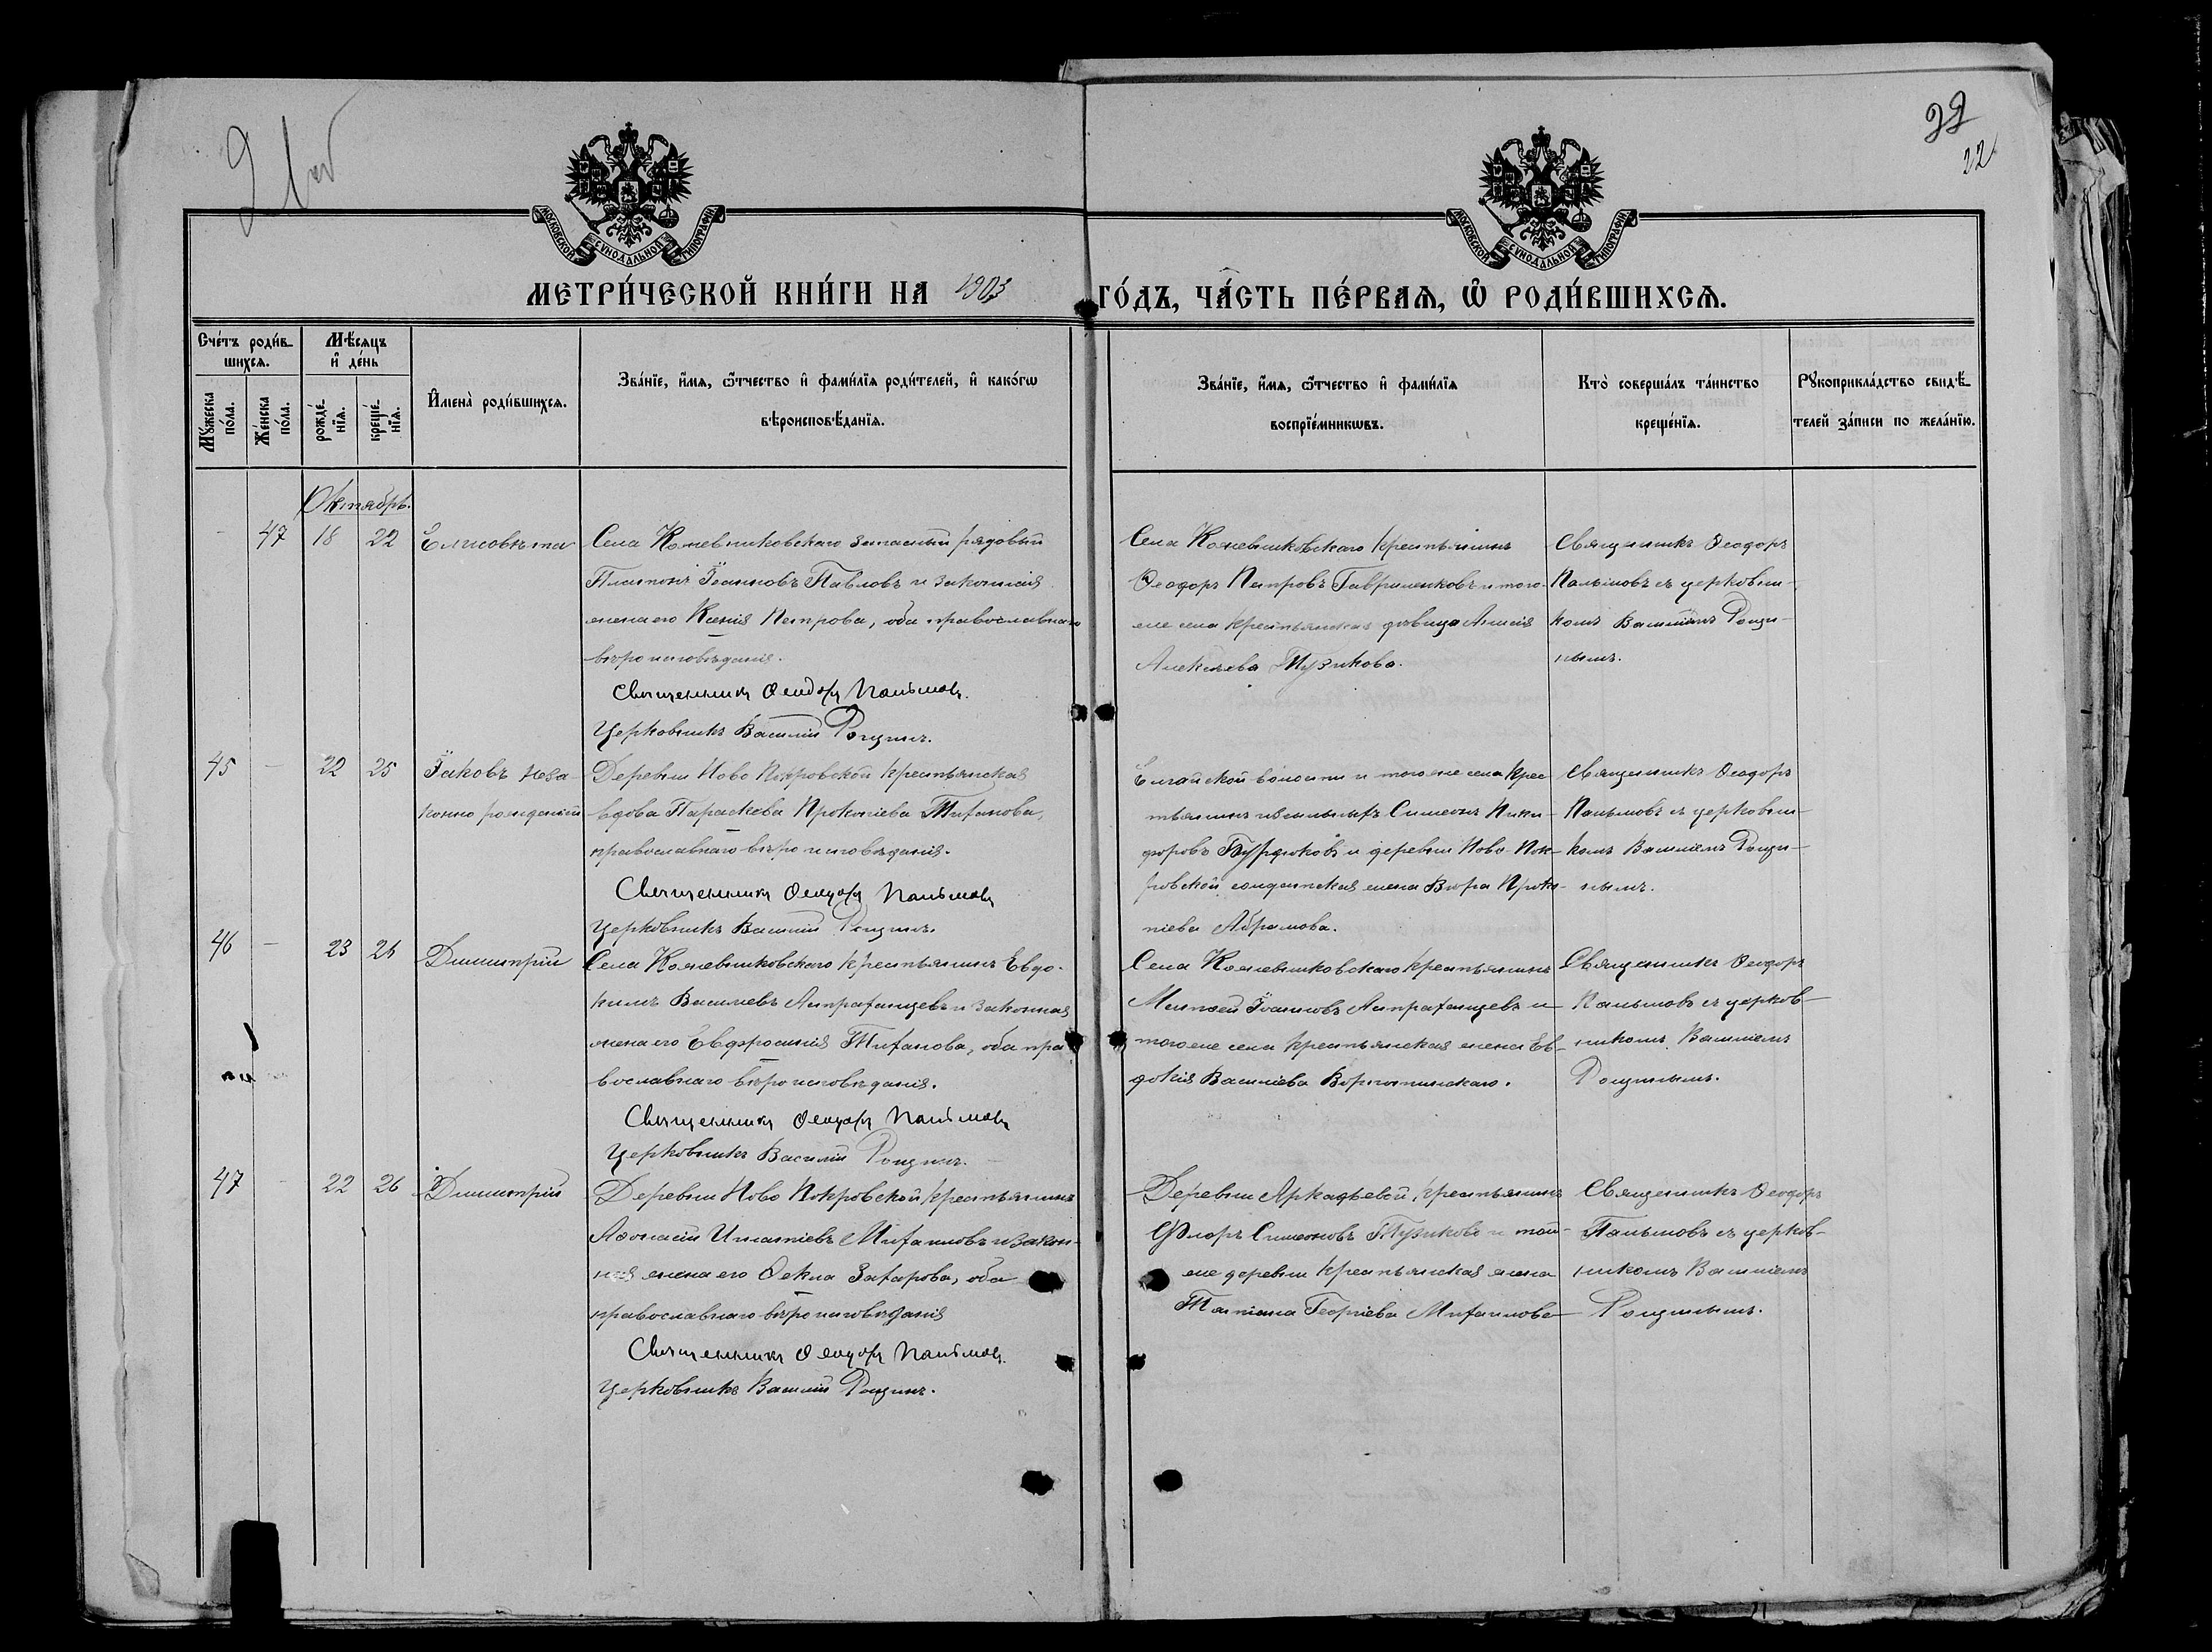 22
22
МОСКОВСКОЙ СУНОДАЛЬНОЙ ТИПОГРАФІИ
МОСКОВСКОЙ СУНОДАЛЬНОЙ ТИПОГРАФІИ
МЕТРИ́ЧЕСКОЙ КНИ́ГИ НА 1903 ГО́ДЪ, ЧА́СТЬ ПЕ́РВАѦ, Ѡ РОДИ́ВШИХСѦ.
Сче́тъ роди́в-
шихсѧ.
Мѣ́сѧцъ
и҆ де́нь
Мꙋ́жеска по́ла.
Же́нска по́ла.
рожде́нїѧ.
креще́нїѧ.
И҆мена̀ роди́вшихсѧ.
Зва́нїе, и҆́мѧ, ѻ҆́тчество и҆ фами́лїѧ роди́телей, и҆ како́гѡ
вѣроисповѣ́данїѧ.
Зва́нїе, и҆́мѧ, ѻ҆́тчество и҆ фами́лїѧ
воспрїе́мникѡвъ.
Кто̀ соверша́лъ та́инство
креще́нїѧ.
Рꙋкоприкла́дство свидѣ́-
телей за́писи по жела́нїю.
Октябрь.
- 47 18 22 Елисовѣта
Села Кожевниковскаго запасный рядовый
Платонъ Іоанновъ Павловъ и законная
жена его Ксенія Петрова, оба православнаго
вѣроисповѣданія.
Священникъ Ѳеодоръ Пальмовъ.
Церковникъ Василій Рощинъ.
Села Кожевниковскаго крестьянинъ
Ѳеодоръ Петровъ Гавриленковъ и того-
же села крестьянская дѣвица Анисія
Алексѣева Тузикова.
Священникъ Ѳеодоръ
Пальмовъ съ церковни-
комъ Василіемъ Рощи-
нымъ.
45 - 22 25 Іаковъ неза-
конно рожденный
Деревни Ново Покровской крестьянская
вдова Параскева Прокопіева Титанова,
православнаго вѣроисповѣданія.
Священникъ Ѳеодоръ Пальмовъ
Церковникъ Василій Рощинъ.
Елгайской волости и того же села крес
тьянинъ Симеонъ Ники-
форовъ Бурдюковъ и деревни Ново-Пок-
ровской солдатская жена Вѣра Проко-
піева Абрамова.
Священникъ Ѳеодоръ
Пальмовъ съ церковни-
комъ Василіемъ Рощи-
нымъ.
46 - 23 26 Димитрій
Села Кожевниковскаго крестьянинъ Евдо-
кимъ Василіевъ Астраханцевъ и законная
жена его Евфросинія Титанова, оба пра
вославнаго вѣроисповѣданія.
Священникъ Ѳеодоръ Пальмовъ
Церковникъ Василій Рощинъ.
Села Кожевниковскаго крестьянинъ
Матвей Іоанновъ Астраханцевъ и
того же села крестьянская жена Ев-
докія Василіева
Священникъ Ѳеодоръ
Пальмовъ съ церков-
никомъ Василіемъ
Рощинымъ.
47 - 22 26 Димитрій
Деревни Ново Покровской крестьянинъ
Аѳонасій Игнатіевъ Михаиловъ и закон-
ная жена его Ѳекла Захарова, оба
православнаго вѣроисповѣданія
Священникъ Ѳеодоръ Пальмовъ.
Церковникъ Василій Рощинъ.
Деревни Аркадьевой, крестьянинъ
Флоръ Симеоновъ Тузиковъ и той-
же деревни крестьянская жена
Татіана Георгіева Михаилова
Священникъ Ѳеодоръ
Пальмовъ съ церков-
никомъ Василіемъ
Рощинымъ.